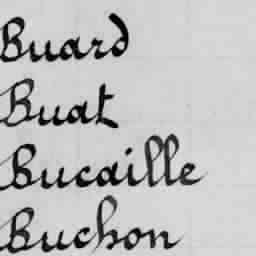 Buard
Buat
Bucaille
Buchon